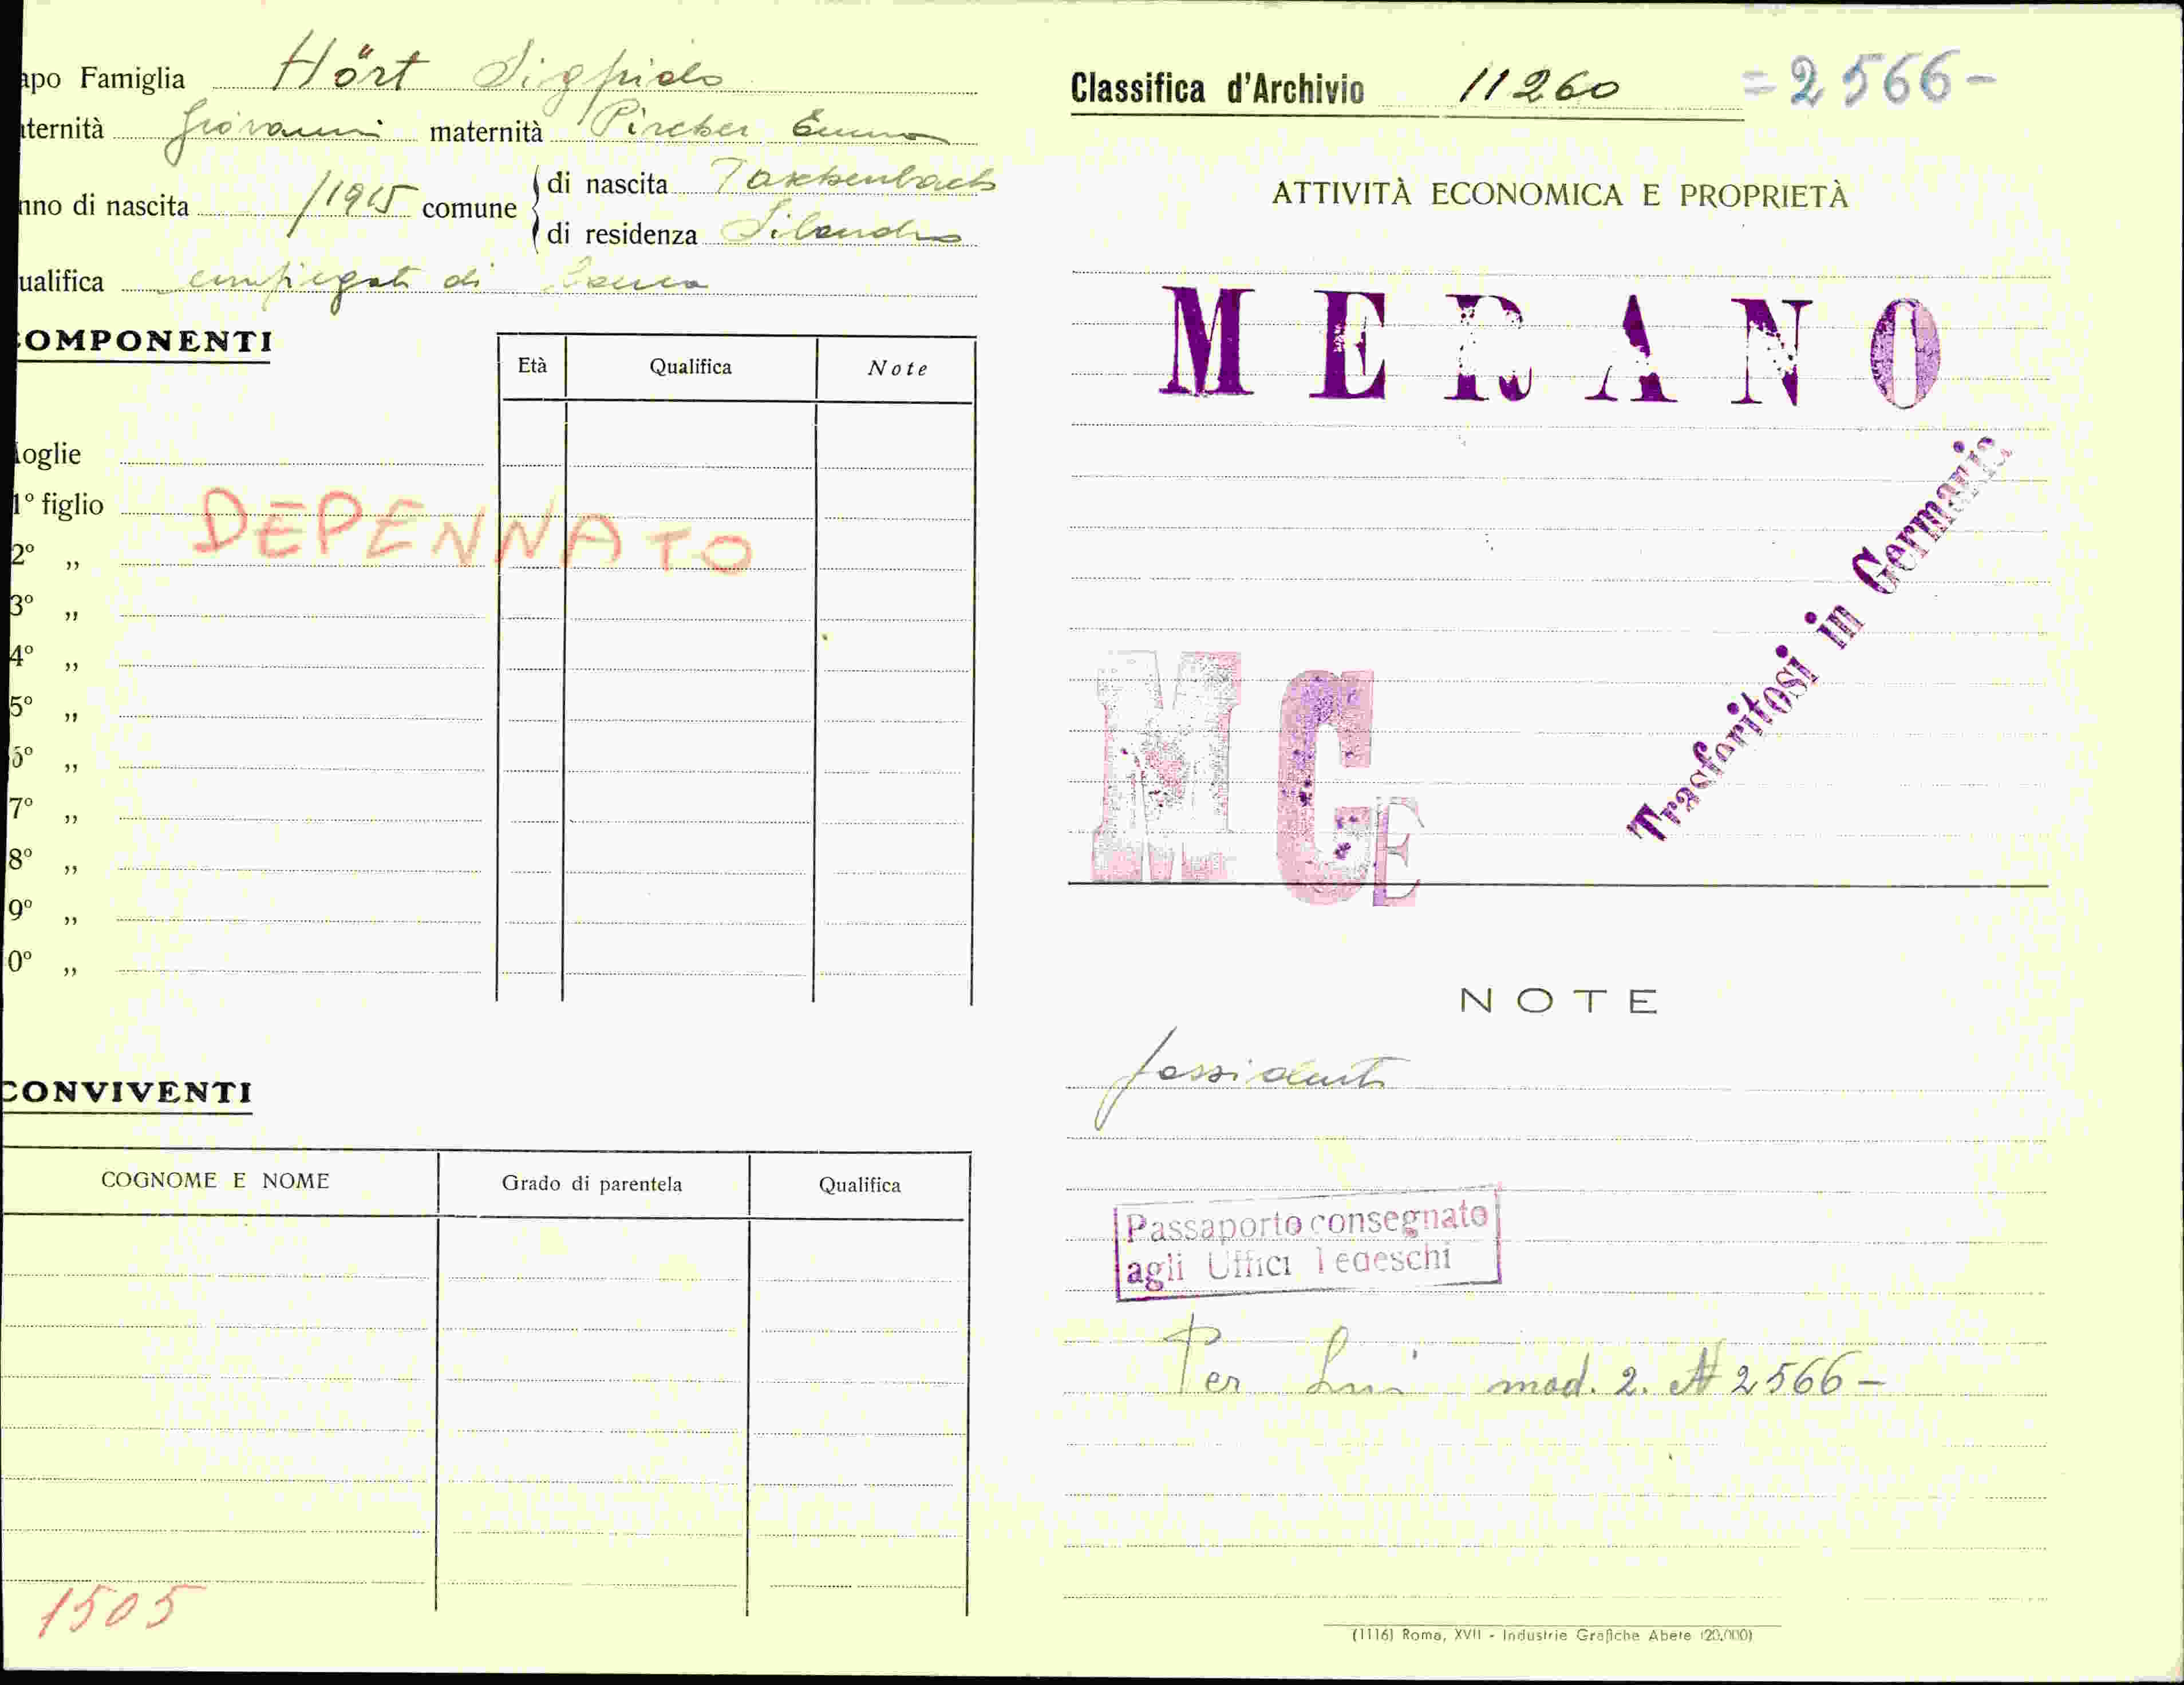 apo Famiglia Hört Sigfrido
ternità Giovanni maternità Pircher Emma
nno di nascita /1915 comune di nascita
di residenza Silandro
ualifica impiegato di banca
COMPONENTI
Età Qualifica Note
oglie
1° figlio
DEPENNATO
2° ,,
3° ,,
4° ,,
5° ,,
6° ,,
7° ,,
8° ,,
9° ,,
0° ,,
CONVIVENTI
COGNOME E NOME Grado di parentela Qualifica
1505
Classifica d'Archivio 11260 =2566-
ATTIVITÀ ECONOMICA E PROPRIETÀ
MERANO
Trasferitosi in Germania
M G E
NOTE
possidente
Passaporto consegnato
agli Uffici Tedeschi
Per Lui mod. 2. N 2566-
(1116) Roma, XVII - Industrie Grafiche Abete (20.000)